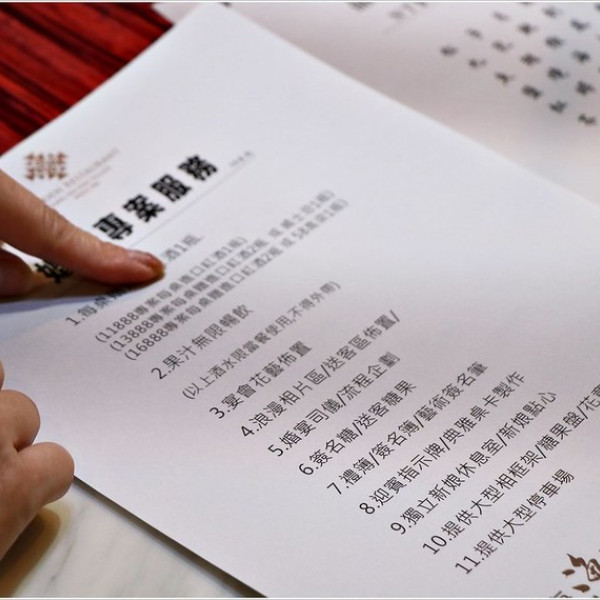 RESTAURANT
專案服務
1.每桌
酒1瓶
(11888專案每桌進口紅酒1瓶)
(13888專案每桌贈進口紅酒2瓶 或 爵士忌1瓶)
(16888專案每桌贈進口紅酒2瓶 或 58高粱1瓶)
2.果汁無限暢飲
(以上酒水限當餐使用,不得外帶)
3.宴會花藝佈置
4.浪漫相片區/送客區佈置/
5.婚宴司儀/流程企劃
6.簽名糖/送客糖果
7.禮簿/簽名簿/藝術簽名筆
8.迎賓指示牌/典雅桌卡製作
9.獨立新娘休息室/新娘點心
10.提供大型相框架/糖果盤/花
11.提供大型停車場